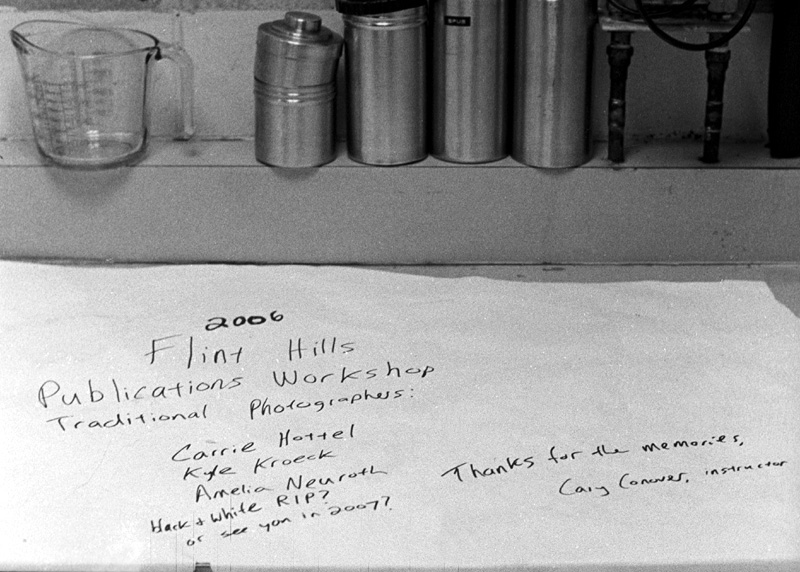 2006
Flint Hills
Publications Workshop
Traditional Photographers:
Carrie Hottel
Kyle Kroeck
Amelia Neuroth
Black & White RIP?
or see you in 2007?
Thanks for the memories,
Cary Conover, instructor